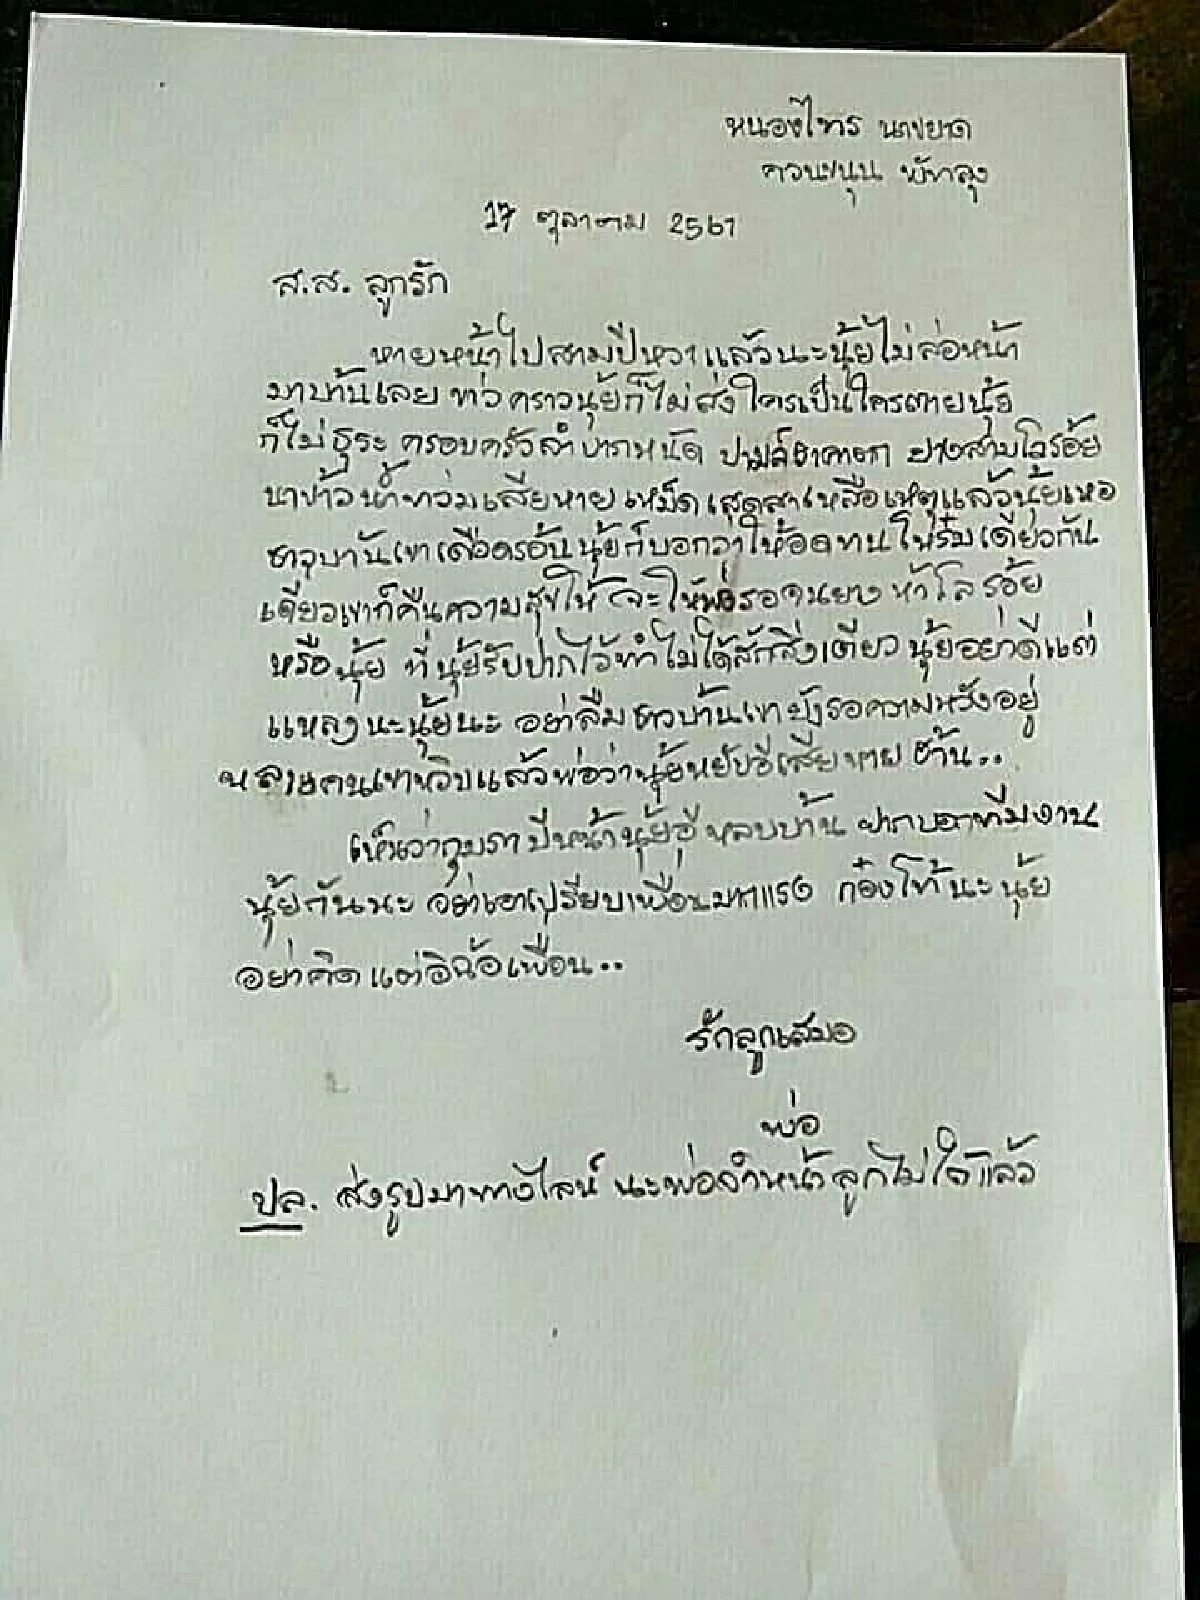 หนองไทร นาขยาด
ควนขนุน พัทลุง
17 ตุลาคม 2561
ส.ส. ลูกรัก
หายหน้าไปสามปีหวาแล้วนะนุ้ยไม่ส่อหน้า
มาบ้านเลย ข่าวคราวนุ้ยก็ไม่ส่งใครเป็นใครตายนุ้ย
ก็ไม่ธุระ ครอบครัวลำบากหนัด ปาล์มราคาตก ยางสามโลร้อย
นาข้าวน้ำท่วมเสียหายเหม็ดเสดสาเหลือเหตุแล้วนุ้ยเหอ
ชาวบ้านเขาเดือดร้อนนุ้ยก็บอกว่าให้อดทนให้ริมเดียวกัน
เดียวเขาก็คืนความสุขให้ จะให้พ่อรอจนยาง ห้าโลร้อย
หรือนุ้ย ที่นุ้ยรับปากไว้ทำไม่ได้สักสิ่งเดียว นุ้ยอย่าดีแต่
แหลงนะนุ้ยนะ อย่าลืมชาวบ้านเขายังรอความหวังอยู่
หลายคนเขาหวิบแล้วพ่อว่านุ้ยหยับอีเสียหาย ฮ้าน..
เห็นว่ากุมภาปีหน้านุ้ยอีหลบบ้าน ฝากบอกทีมงาน
นุ้ยกันนะ อย่าเอาเปรียบเพื่อนมากแรง ก๋องโท้นะนุ้ย
อย่าคิดแต่อิฉ้อเพื่อน..
รักลูกเสมอ
พ่อ
ปล. ส่งรูปมาทางไลน์ นะพ่อจำหน้าลูกไม่ได้แล้ว